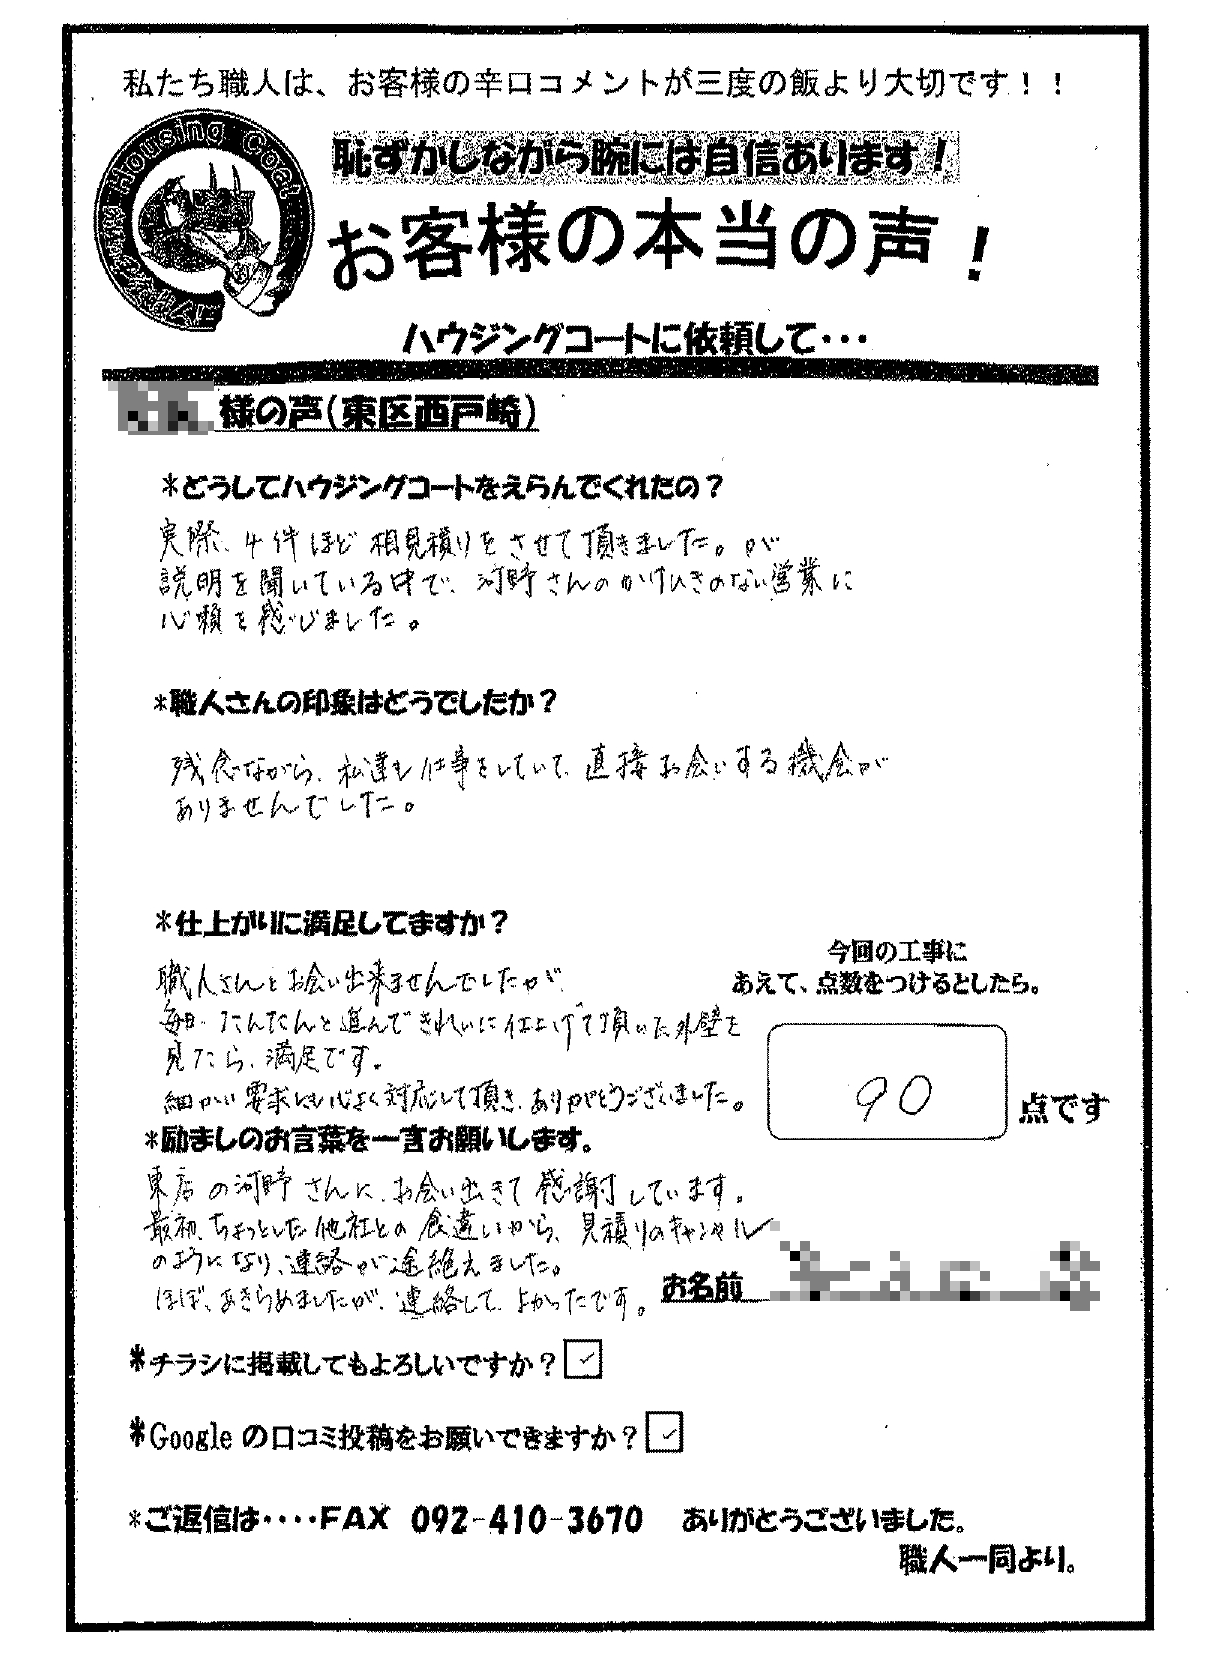 私たち職人は、お客様の辛口コメントが三度の飯より大切です！！
Housing Coat
恥ずかしながら腕には自信あります！
お客様の本当の声！
ハウジングコートに依頼して・・・
様の声(東区西戸崎)
*どうしてハウジングコートをえらんでくれたの？
実際、4件ほど相見積りをさせて頂きました。が
説明を聞いている中で、河野さんのかけひきのない営業に
心頼を感じました。
*職人さんの印象はどうでしたか？
残念ながら、私達も仕事をしていて、直接お会いする機会が
ありませんでした。
*仕上がりに満足してますか？
今回の工事に
あえて、点数をつけるとしたら。
職人さんとお会い出来ませんでしたが、
毎日、たんたんと進んできれいに仕上げて頂いた外壁を
見たら、満足です。
細かい要求にも心よく対応して頂き、ありがとうございました。
90 点です
*励ましのお言葉を一言お願いします。
東店の河野さんに、お会い出きて感謝しています。
最初、ちょっとした他社との食違いから、見積りのキャンセル
のようになり、連絡が途絶えました。
ほぼ、あきらめましたが、連絡して、よかったです。
お名前
*チラシに掲載してもよろしいですか？ ✓
*Googleの口コミ投稿をお願いできますか？ ✓
*ご返信は・・・・FAX 092-410-3670 ありがとうございました。
職人一同より。